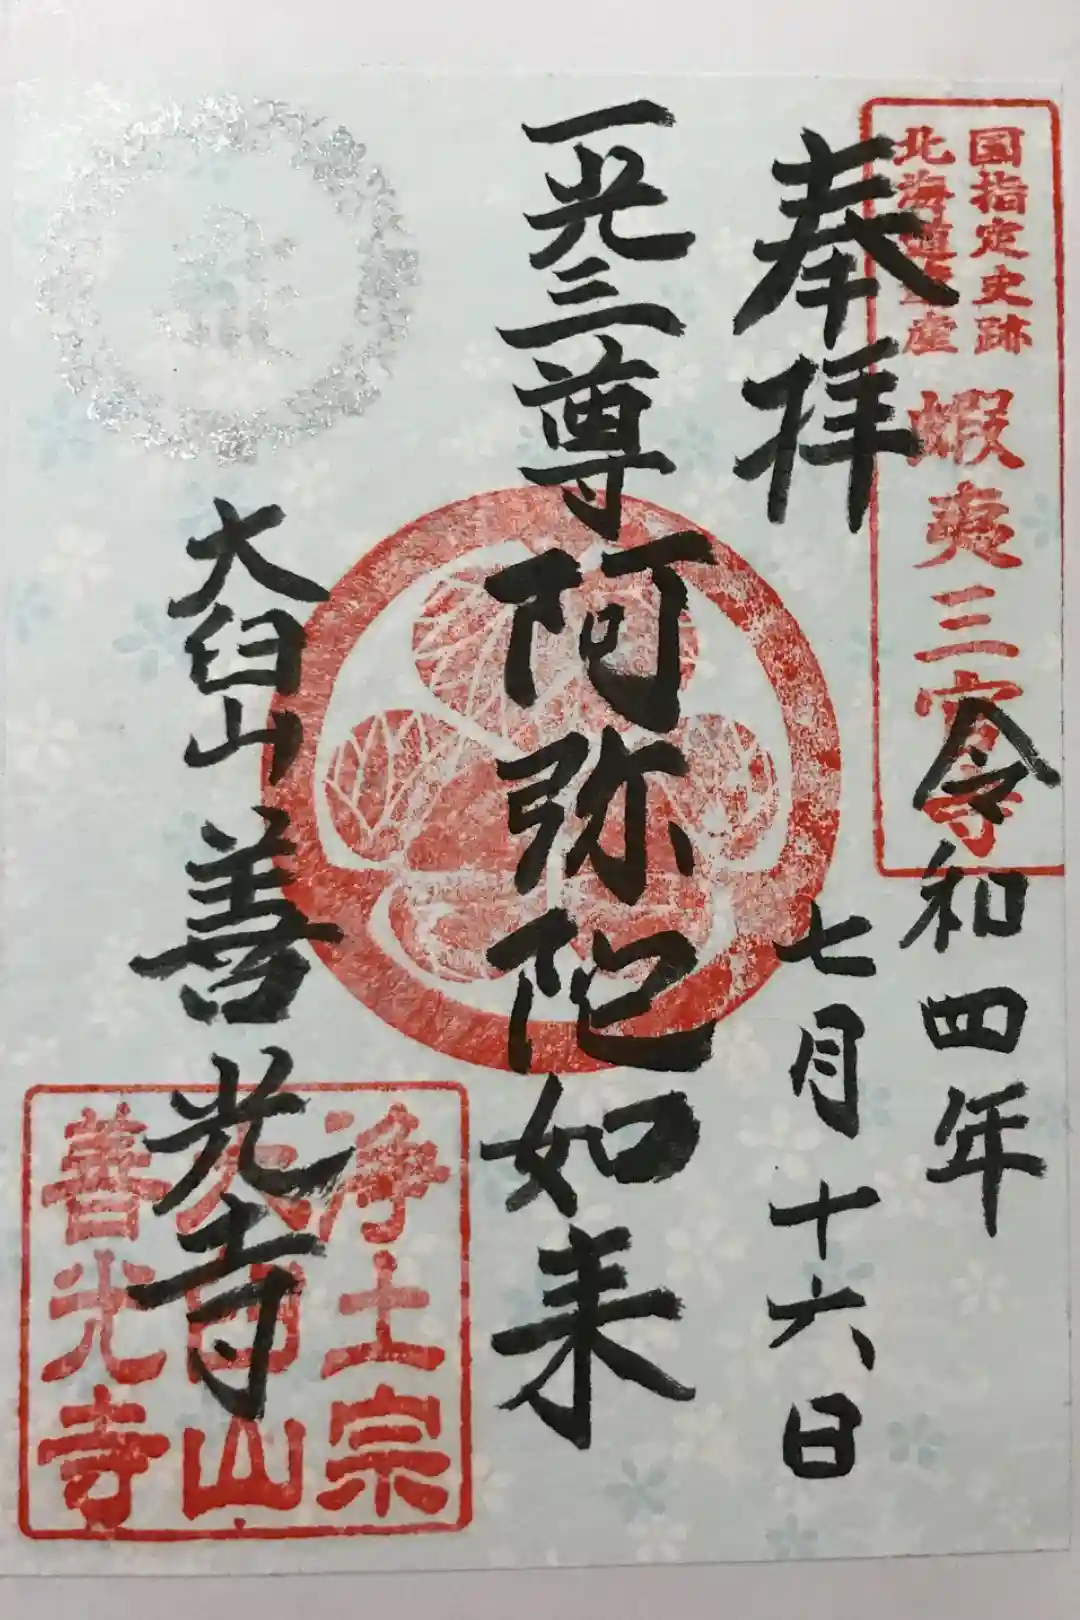 國指定史跡
北海道遺産
蝦夷三官寺
奉拝
令和四年
七月十六日
一光三尊阿弥陀如来
大臼山
善光寺
浄土宗
大臼山
善光寺